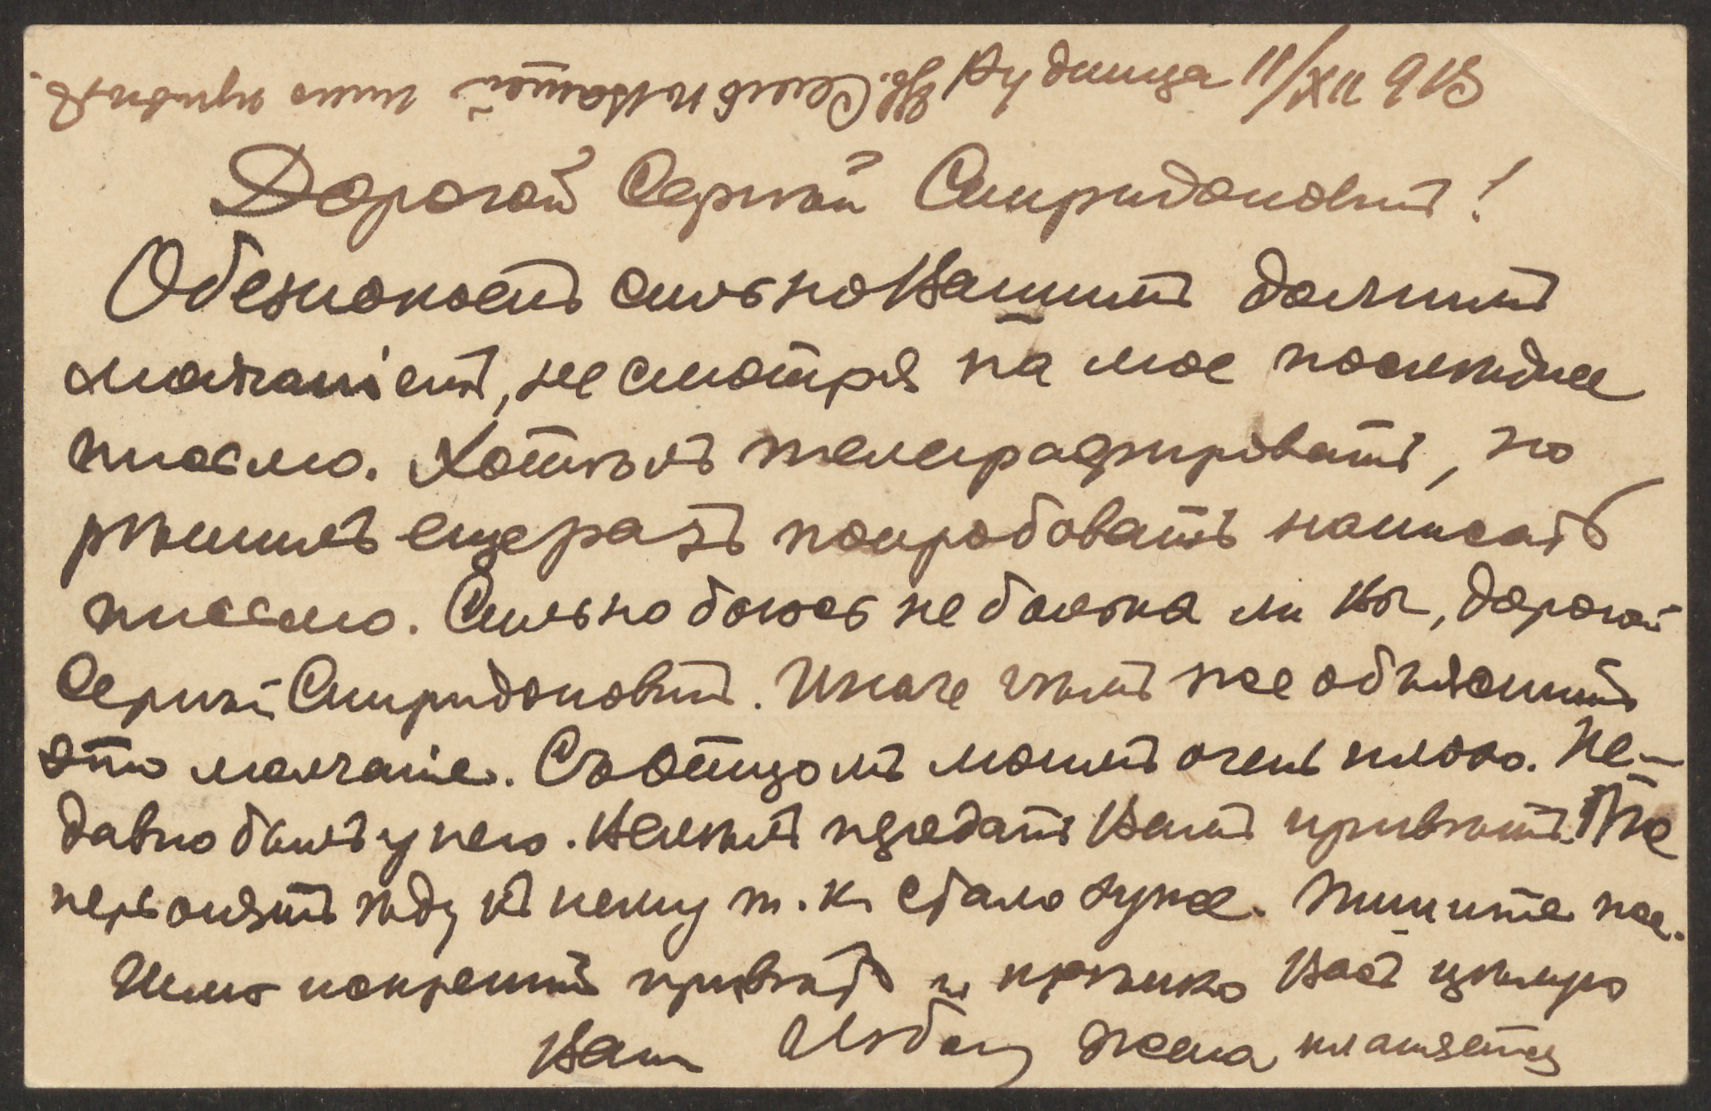 Кудиица 11/XII 913
Дорогой Сергѣй Спиридоновичъ!
Обезпокоенъ сильно Вашимъ долгимъ
молчаніемъ, не смотря на мое последнее
письмо. Хотѣлъ телеграфировать, но
рѣшилъ еще разъ попробовать написать
письмо. Сильно боюсь не больна ли Вы, дорогой
Сергѣй Спиридоновичъ. Иначе чѣмъ же объяснить
это молчаніе. Съ отцомъ моимъ очень плохо. Не-
давно былъ у него. Велѣлъ передать Вамъ привѣтъ. Те
перь опять ѣду къ нему т. к. стало хуже. Пишите же.
Шлю искренній привѣтъ и крѣпко Васъ цѣлую
Ваш жена кланяется
Семьѣ Вашей шлю привѣтъ.